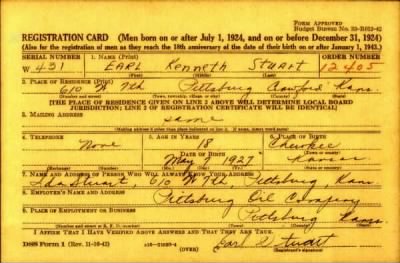 Form Approved
Budget Bureau No. 33-R012-42
REGISTRATION CARD (Men born on or after July 1, 1924, and on or before December 31, 1924)
(Also for the registration of men as they reach the 18th anniversary of the date of their birth on or after January 1, 1943.)
SERIAL NUMBER 1. NAME (Print) ORDER NUMBER
W 431 EARL Kenneth Stuart 12405
(First) (Middle) (Last)
2. PLACE OF RESIDENCE (Print)
610 W 7th Pittsburg Crawford Kans.
(Number and street) (Town, township, village, or city) (County) (State)
[THE PLACE OF RESIDENCE GIVEN ON LINE 2 ABOVE WILL DETERMINE LOCAL BOARD
JURISDICTION; LINE 2 OF REGISTRATION CERTIFICATE WILL BE IDENTICAL]
3. MAILING ADDRESS
same
(Mailing address if other than place indicated on line 2. If same, insert word same)
4. TELEPHONE 5. AGE IN YEARS 6. PLACE OF BIRTH
None 18 Cherokee
DATE OF BIRTH
May 7 1927 Kansas
7. NAME AND ADDRESS OF PERSON WHO WILL ALWAYS KNOW YOUR ADDRESS
Ida Stuart, 610 W 7th, Pittsburg, Kans
8. EMPLOYER'S NAME AND ADDRESS
Pittsburg Oil Company
9. PLACE OF EMPLOYMENT OR BUSINESS
Pittsburg Kans.
(Number and street or R. F. D. number) (Town) (County) (State)
I AFFIRM THAT I HAVE VERIFIED ABOVE ANSWERS AND THAT THEY ARE TRUE.
DSS Form 1 (Rev. 11-16-42) (OVER) Earl K Stuart